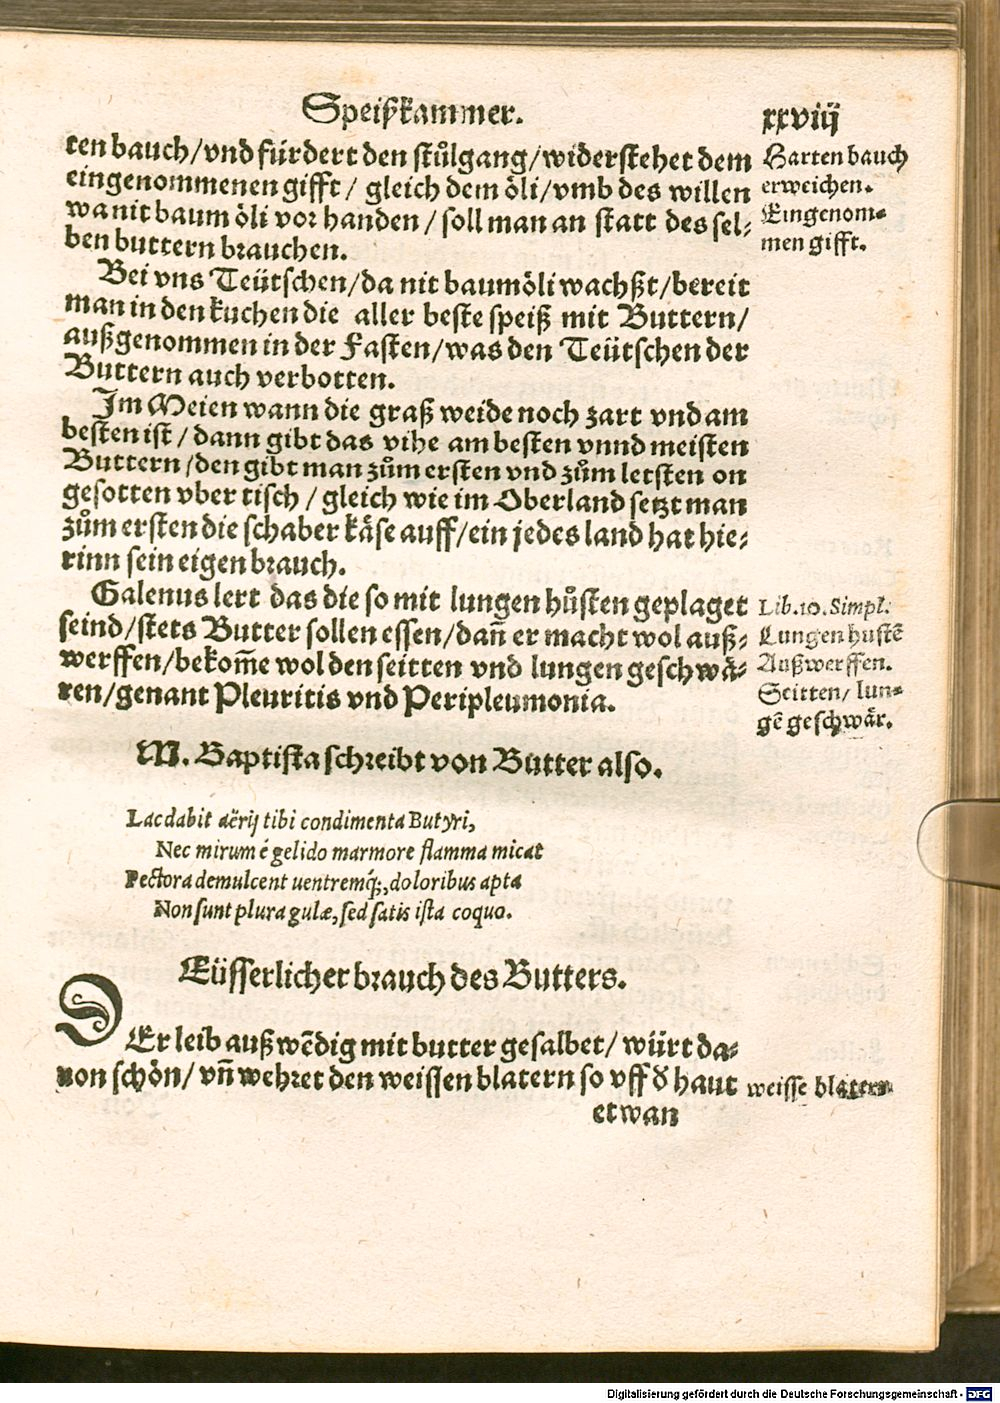 Speißkammer.
xxviij
ten bauch/vnd fürdert den stůlgang/widerstehet dem
eingenommenen gifft/ gleich dem öli/vmb des willen
wa nit baum öli vor handen/ soll man an statt des sel⸗
ben buttern brauchen.
Harten bauch
erweichen.
Eingenom⸗
men gifft.
Bei vns Teütschen/da nit baumöli wachßt/bereit
man in den kuchen die aller beste speiß mit Buttern/
außgenommen in der Fasten/was den Teütschen der
Buttern auch verbotten.
Im Meien wann die graß weide noch zart vnd am
besten ist/ dann gibt das vihe am besten vnnd meisten
Buttern/den gibt man zům ersten vnd zům letsten on
gesotten vber tisch/ gleich wie im Oberland setzt man
zům ersten die schaber käse auff/ein jedes land hat hie⸗
rinn sein eigen brauch.
Galenus lert das die so mit lungen hůsten geplaget
seind/stets Butter sollen essen/dañ er macht wol auß⸗
werffen/bekom̃e wol den seitten vnd lungen geschwå⸗
ren/genant Pleuritis vnd Peripleumonia.
Lib. 10. Simpl.
Lungen hustē
Außwerffen.
Seitten/ lun⸗
gē geschwår.
M. Baptista schreibt von Butter also.
Lac dabit aërij tibi condimenta Butyri,
Nec mirum é gelido marmore flamma micat
Pectora demulcent uentremq́;, doloribus apta
Non sunt plura gulæ, sed satis ista coquo.
Eüsserlicher brauch des Butters.
DEr leib außwēdig mit butter gesalbet/ würt da⸗
uon schön/ vñ wehret den weissen blatern so vff ď haut
weisse blatern
etwan
Digitalisierung gefördert durch die Deutsche Forschungsgemeinschaft - DFG